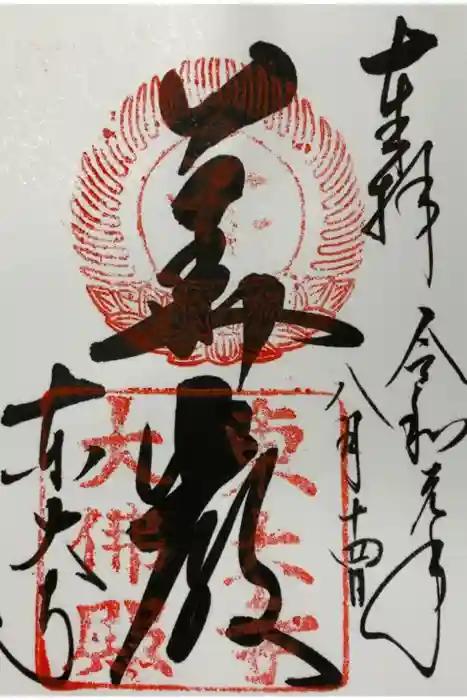 奉拝
令和元年
八月十四日
華厳
東大寺
東大寺
大佛殿